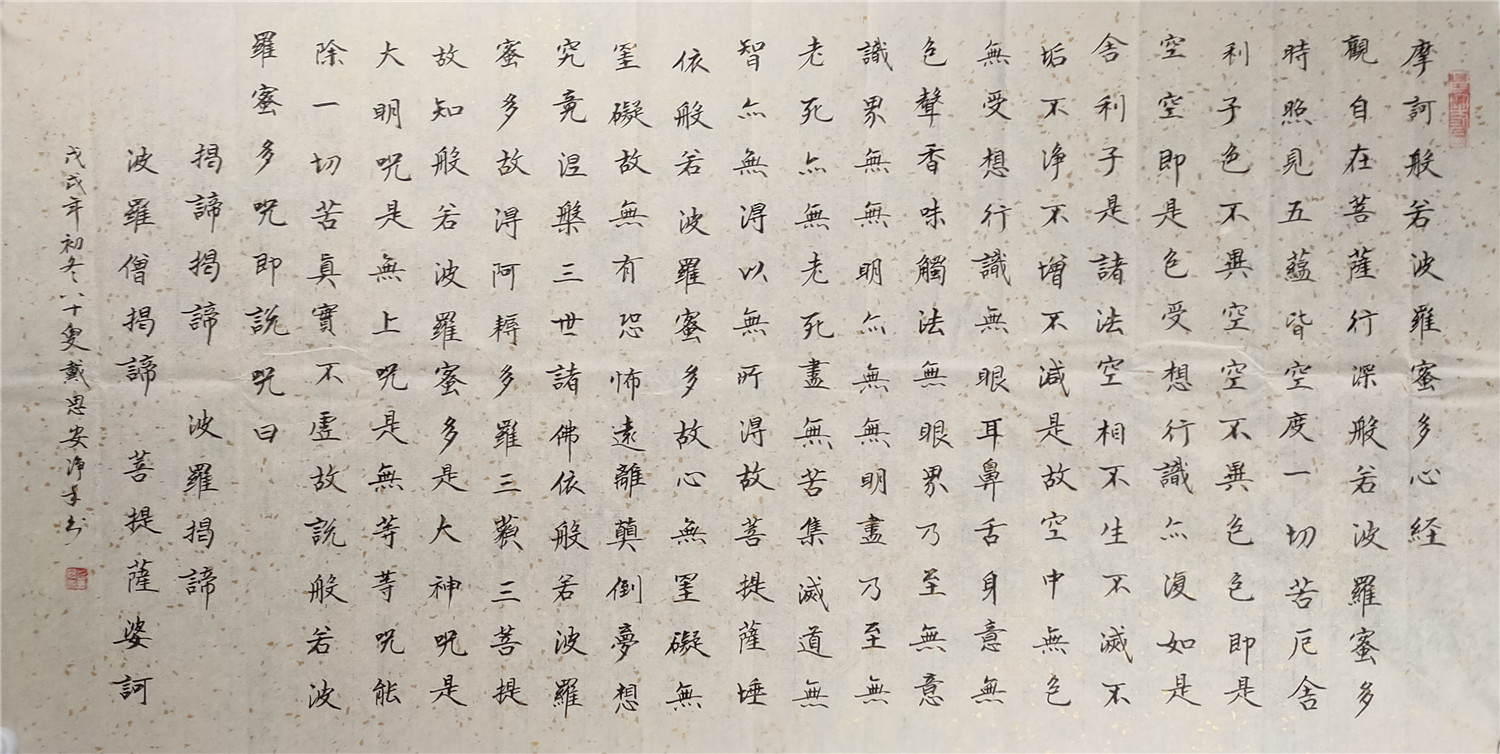 摩訶般若波羅蜜多心経
觀自在菩薩行深般若波羅蜜多
時照見五蘊皆空度一切苦厄舍
利子色不異空空不異色色即是
空空即是色受想行識亦復如是
舍利子是諸法空相不生不滅不
垢不净不增不減是故空中無色
無受想行識無眼耳鼻舌身意無
色聲香味觸法無眼界乃至無意
識界無無明亦無無明盡乃至無
老死亦無老死盡無苦集滅道無
智亦無得以無所得故菩提薩埵
依般若波羅蜜多故心無罣礙無
罣礙故無有恐怖遠離顛倒夢想
究竟涅槃三世諸佛依般若波羅
蜜多故得阿耨多羅三藐三菩提
故知般若波羅蜜多是大神咒是
大明咒是無上咒是無等等咒能
除一切苦真實不虛故說般若波
羅蜜多咒即說咒曰
揭諦揭諦 波羅揭諦
波羅僧揭諦 菩提薩婆訶
戊戌年初冬八十叟戴恩安净手书